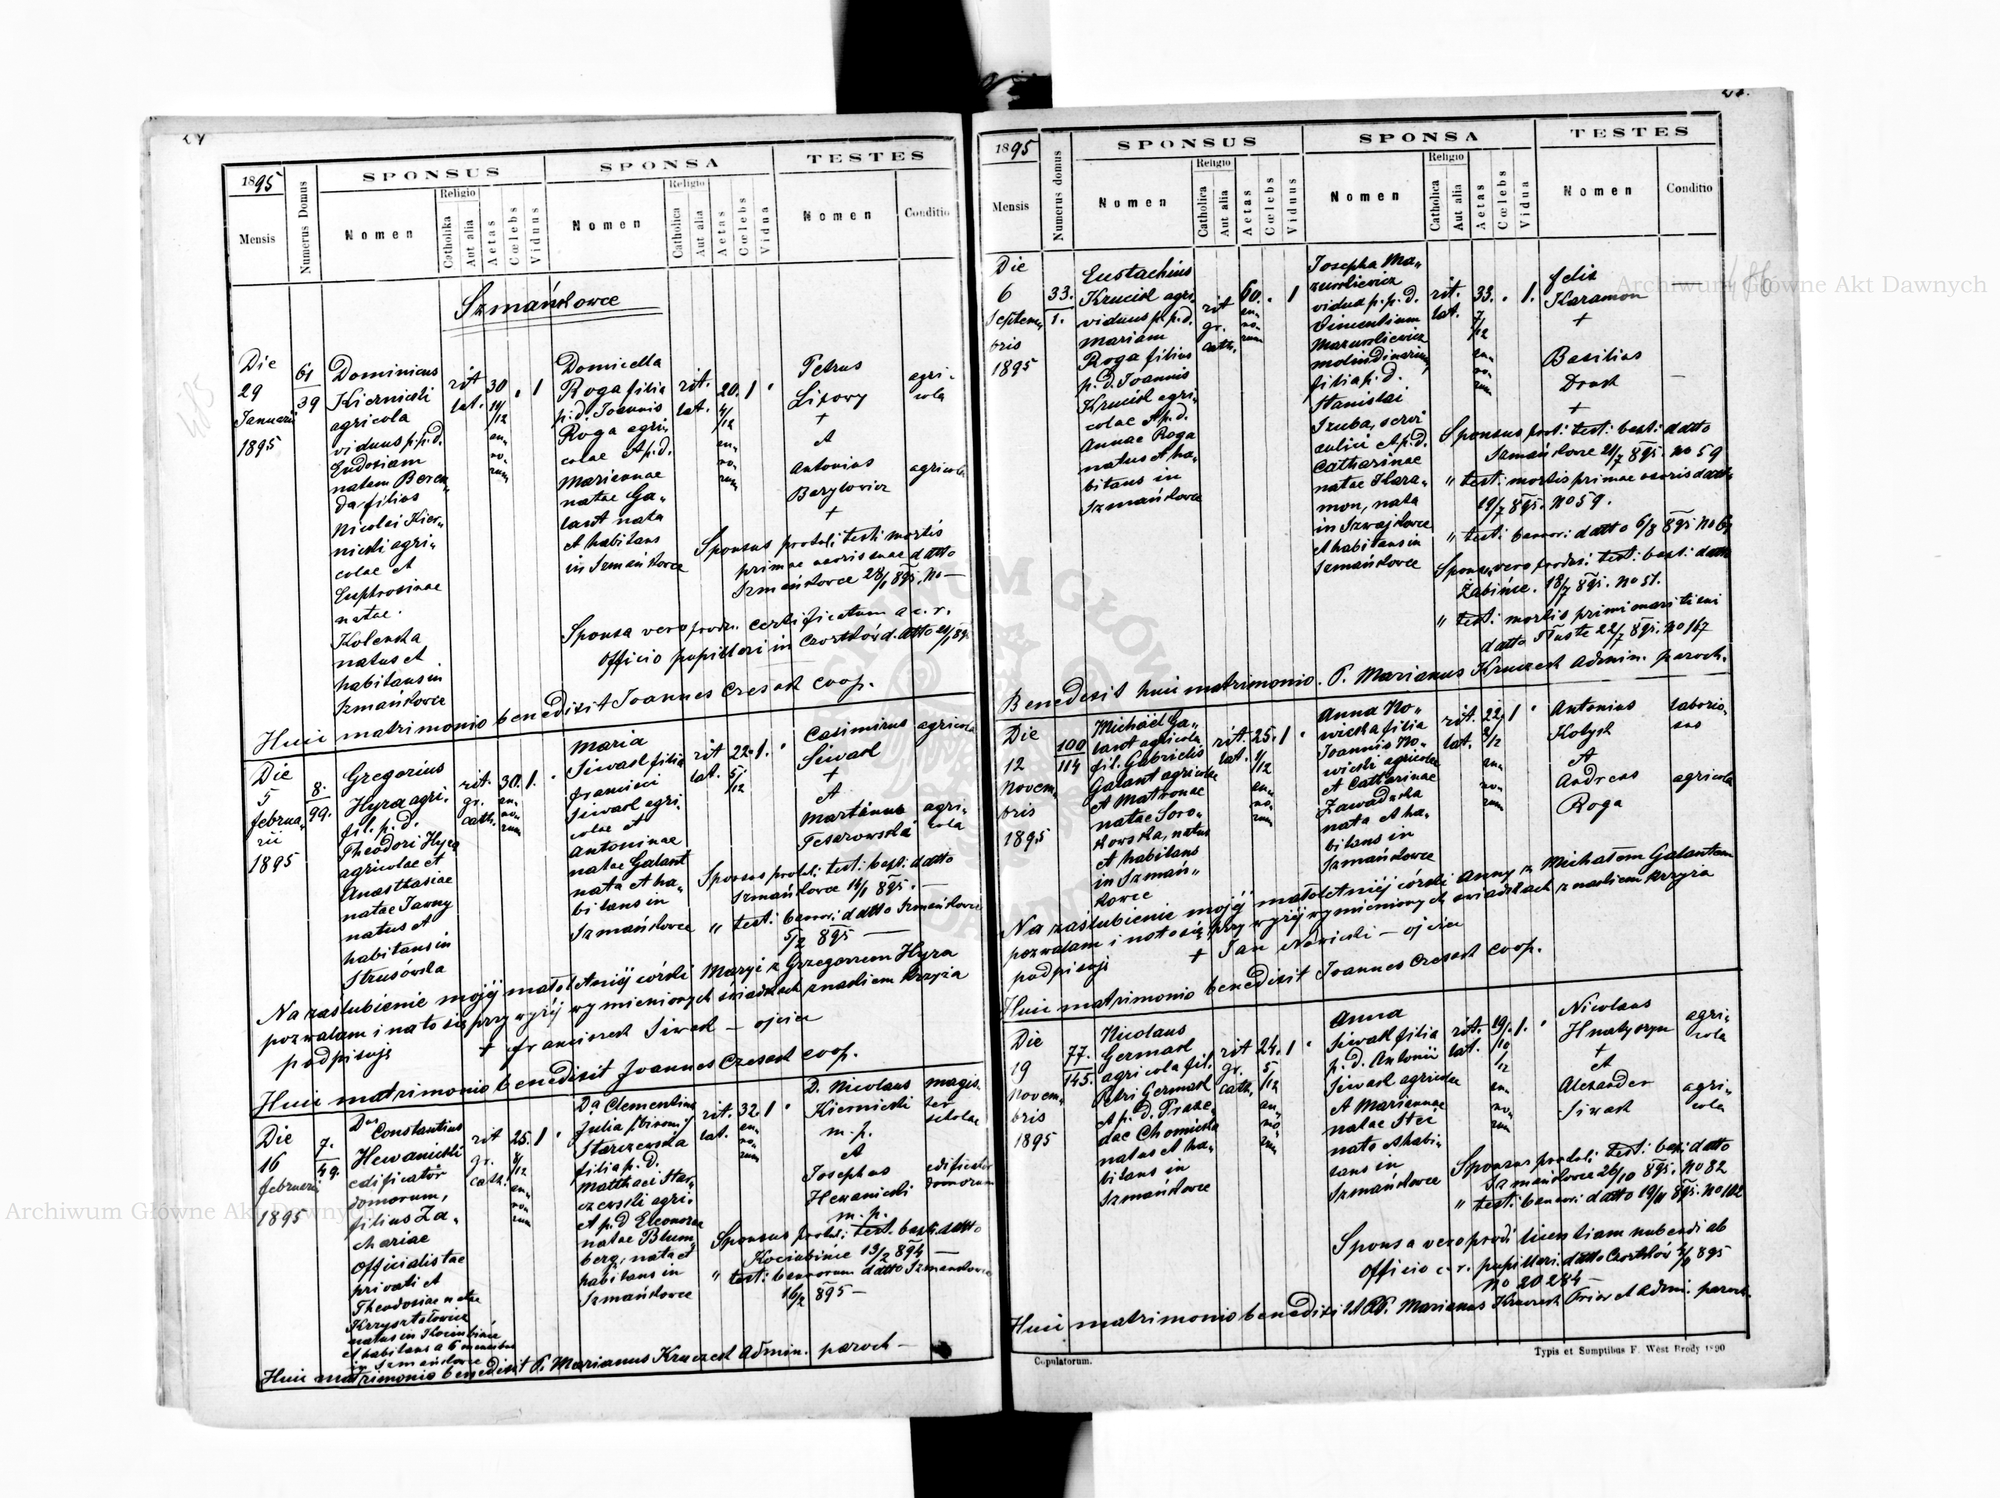 1895
Mensis
Numerus Domus
SPONSUS
Nomen
Religio
Catholika
Aut alia
Aetas
Cœlebs
Vidus
SPONSA
Nomen
Religio
Catholica
Aut alia
Aetas
Cœlebs
Vidua
TESTES
Nomen
Conditio
Szmańkowce
Die
29
Januarii
1895
61
39
Dominicus
Kiernicki
agricola
viduus p.p.d.
Eudosiam
natam Beren-
da filius
Nicolai Kier-
nicki agri-
colae et
Euphrosinae
natae
Kolenka
natus et
habitans in
Szmańkowce
rit.
lat.
30
10/12
an-
no-
rum
1
Domicella
Roga filia
p.d. Joannis
Roga agri-
colae et p.d.
Mariannae
natae Ga-
lant nata
et habitans
in Szmańkowce
rit.
lat.
20
4/12
an-
no-
rum
1
Petrus
Lisowy
+
et
Antonius
Barylowicz
+
agri-
cola
agricola
Sponsus produx. testi mortis
primae uxoris suae datto
Szmańkowce 28/1 895. No —
Sponsa vero produ. certificatum a c. r.
Officio pupillari in Czortków d. datto
Huic matrimonio benedixit Joannes Czesak coop.
Die
5
Februa-
rii
1895
8.
99.
Gregorius
Hyza agri.
fil. p.d.
Theodori Hyza
agricolae et
Anasthasiae
natae Jawny
natus et
habitans in
Strusówka
rit.
gr.
cath.
30
an-
no-
rum
1.
Maria
Siwak filia
Francisci
Siwak agri-
colae et
Antoninae
natae Galant
nata et ha-
bitans in
Szmańkowce
rit
lat.
22
5/12
1.
Casimirus
Siwak
+
et
Martinus
Tesarowski
agricola
agri-
cola
Sponsus produx. test: bapt: datto
Szmańkowce 14/1 895. —
" test: bannor: datto Szmańkowce
5/2 895 —
Na zaślubienie mojéj małoletniéj córki Maryi z Grzegorzem Hyza
pozwalam i na to się przy wyżéj wymienionych świadkach znakiem krzyża
podpisuję + Franciszek Siwak — ojciec
Huic matrimonio benedixit Joannes Czesak coop.
Die
16
Februarii
1895
7.
49.
Dnus Constantinus
Hewanicki
edificator
domorum,
filius Za-
chariae
Officialistae
privati et
Theodosiae natae
Krzysztofowicz
natus in Kociubińce
et habitans a 6 mensibus
in Szmańkowce
rit
gr.
cath.
25.
8/12
an-
no-
rum
1
Da Clementina
Julia (binom.)
Starzewska
filia p.d.
Matthaei Star-
zewski agri.
et p.d Eleonorae
natae Blum-
berg, nata et
habitans in
Szmańkowce
rit.
lat.
32
an-
no-
rum
1
D. Nicolaus
Kiernicki
m.p.
et
Josephus
Hewanicki
m.p.
magis-
ter
scholae
edificator
domorum
Sponsus produx: test. bapti: datto
Kociubińce 13/2 894 —
" test: bannorum datto Szmańkowce
16/2 895 —
Huic matrimonio benedixit P. Marianus Kruczek Admin. paroch —
1895
Mensis
Numerus domus
SPONSUS
Nomen
Religio
Catholica
Aut alia
Aetas
Cœlebs
Vidus
SPONSA
Nomen
Religio
Catholica
Aut alia
Aetas
Cœlebs
Vidua
TESTES
Nomen
Conditio
Die
6
Septem-
bris
1895
33.
1.
Eustachius
Krucik agri.
viduus p.p.d.
Mariam
Roga filius
p.d. Joannis
Krucik agri-
colae et p.d.
Annae Roga
natus et ha-
bitans in
Szmańkowce
rit
gr.
cath.
60.
an-
no-
rum
1
Josepha Ma-
zurkiewicz
vidua p.p.d.
Vincentium
Mazurkiewicz
molendinarium
filia p.d.
Stanislai
Szuba, servi
aulici et p.d.
Catharinae
natae Kara-
mon, nata
in Szwajkowce
et habitans in
Szmańkowce
rit.
lat.
33.
7/12
an-
no-
rum
1.
Felix
Karamon
+
Basilius
Drack
+
Sponsus prod: test: bapt: datto
Szmańkowce 21/7 895. No 59
" test: mortis primae uxoris datto
19/7 895. No 59.
" test: bannor: datto 6/8 895 No
Sponsa vero produx: test: bapt: datto
Żabińce. 18/7 895. No 51.
" test: mortis primi mariti sui
datto Tłuste 22/7 895. No 167
Benedixit huic matrimonio. P. Marianus Kruczek Admin. paroch.
Die
12
Novem-
bris
1895
100
114
Michael Ga-
lant agricola
fil. Gabrielis
Galant agricolae
et Matronae
natae Soro-
kowska, natus
et habitans
in Szmań-
kowce
rit.
lat.
25.
1/12
an-
no-
rum
1
Anna No-
wicka filia
Joannis No-
wicki agricolae
et Catharinae
Zawadzka
nata et ha-
bitans in
Szmańkowce
rit.
lat.
22
8/12
an-
no-
rum
1
Antonius
Kotyk
et
Andreas
Roga
laborio-
sus
agricola
Na zaślubienie mojéj małoletniéj córki Anny z Michałem Galantem
pozwalam i na to się przy wyżéj wymienionych świadkach znakiem krzyża
podpisuję + Jan Nowicki — ojciec
Huic matrimonio benedixit Joannes Czesak coop.
Die
19
Novem-
bris
1895
77.
145.
Nicolaus
Germak
agricola fil.
Petri Germak
et p.d. Praxe-
dae Chomicka
natus et ha-
bitans in
Szmańkowce
rit
gr.
cath.
24.
5/12
an-
no-
rum
1
Anna
Siwak filia
p.d. Antonii
Siwak agricolae
et Mariannae
natae Stec
nata et habi-
tans in
Szmańkowce
rit.
lat.
19
10/12
an-
no-
rum
1.
Nicolaus
Hnatyszyn
+
et
Alexander
Siwak
agri-
cola
agri-
cola
Sponsus produx: test: bap: datto
Szmańkowce 26/10 895. No 82
" test: bannor: datto 19/11 895. No 102
Sponsa vero prod: licentiam nubendi ab
Officio c. r. pupillari datto Czortków 895
No 20284 —
Huic matrimonio benedixit P. Marianus Kruczek Prior et Admi. paroch.
Copulatorum.
Typis et Sumptibus F. West Brody 1890
Archiwum Główne Akt Dawnych
Archiwum Główne Akt Dawnych